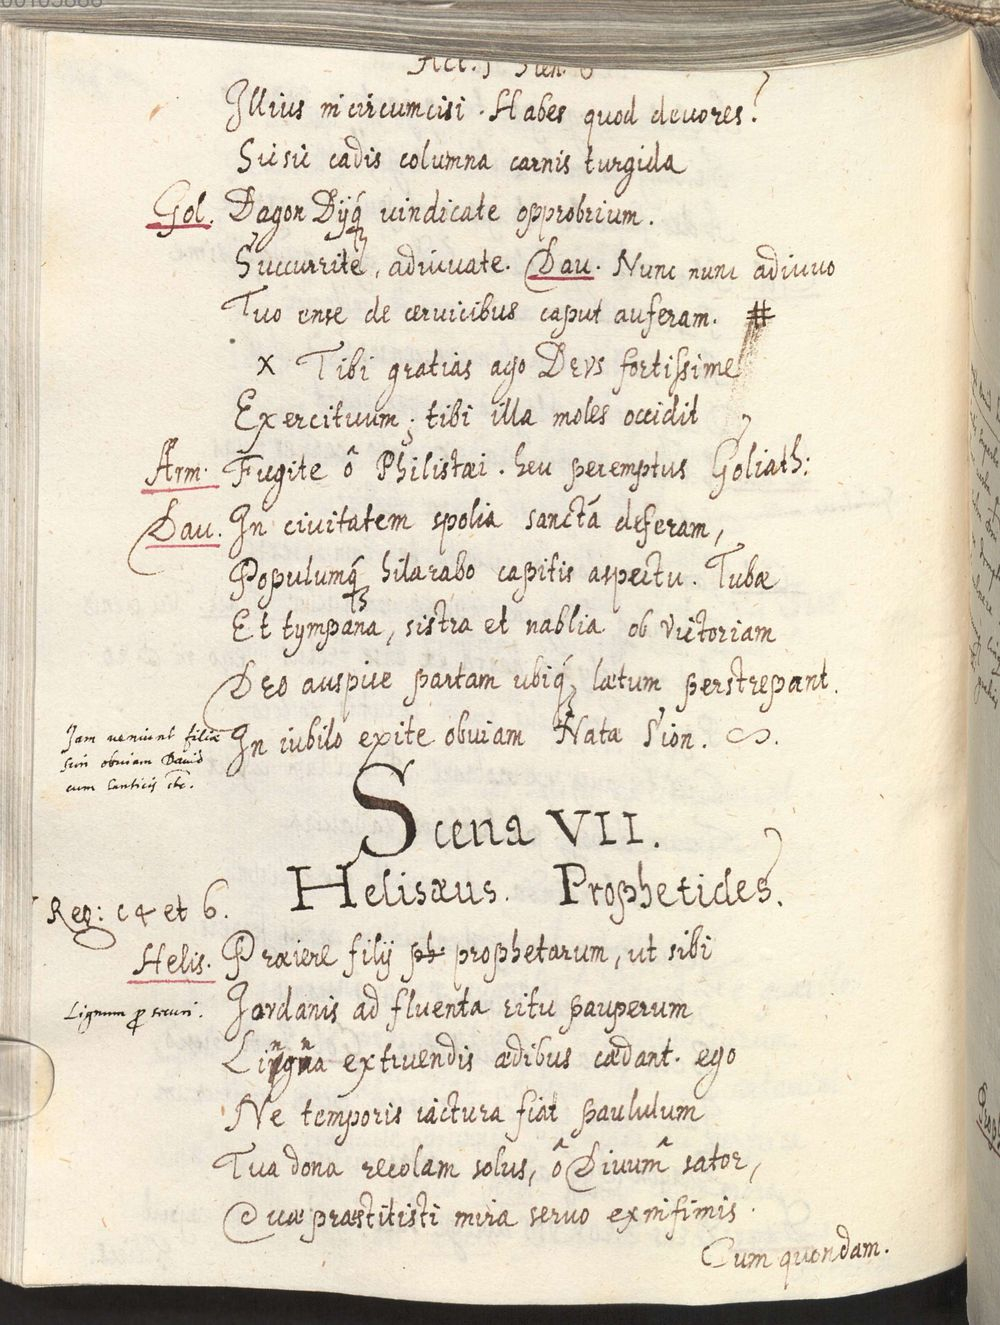 00105868
Act. 5 Scen. 6
Illius incircumcisi. Habes quod deuores?
Sic sic cadis columna carnis turgida
Gol. Dagon Dijq́ȝ uindicate opprobrium.
Succurrite, adiuuate. Dau. Nunc nunc adiuuo
Tuo ense de ceruicibus caput auferam. #
x Tibi gratias ago Deus fortissime
Exercituum; tibi illa moles occidit
Arm. Fugite ô Philistæi. heu peremptus Goliath:
Dau. In ciuitatem spolia sanctã deferam,
Populumq́ȝ hilarabo capitis aspectu. Tubæ
Et tympana, sistra et nablia ob victoriam
Deo auspice partam ubiq́ȝ lætum perstrepant.
In iubilo exite obuiam Nata Sion.
Jam ueniunt filiæ
Sion obuiam Dauid
cum canticis etc.
Scena VII.
Helisæus. Prophetides.
Reg: c 4 et 6.
Helis. Præiere filij ph prophetarum, ut sibi
Jordanis ad fluenta ritu pauperum
Lignum p̱ securi.
Ligna extruendis ædibus cædant. ego
Ne temporis iactura fiat paululum
Tua dona recolam solus, ô Diuum̂ sator,
Quæ præstitisti mira seruo ex infimis.
Cum quondam.